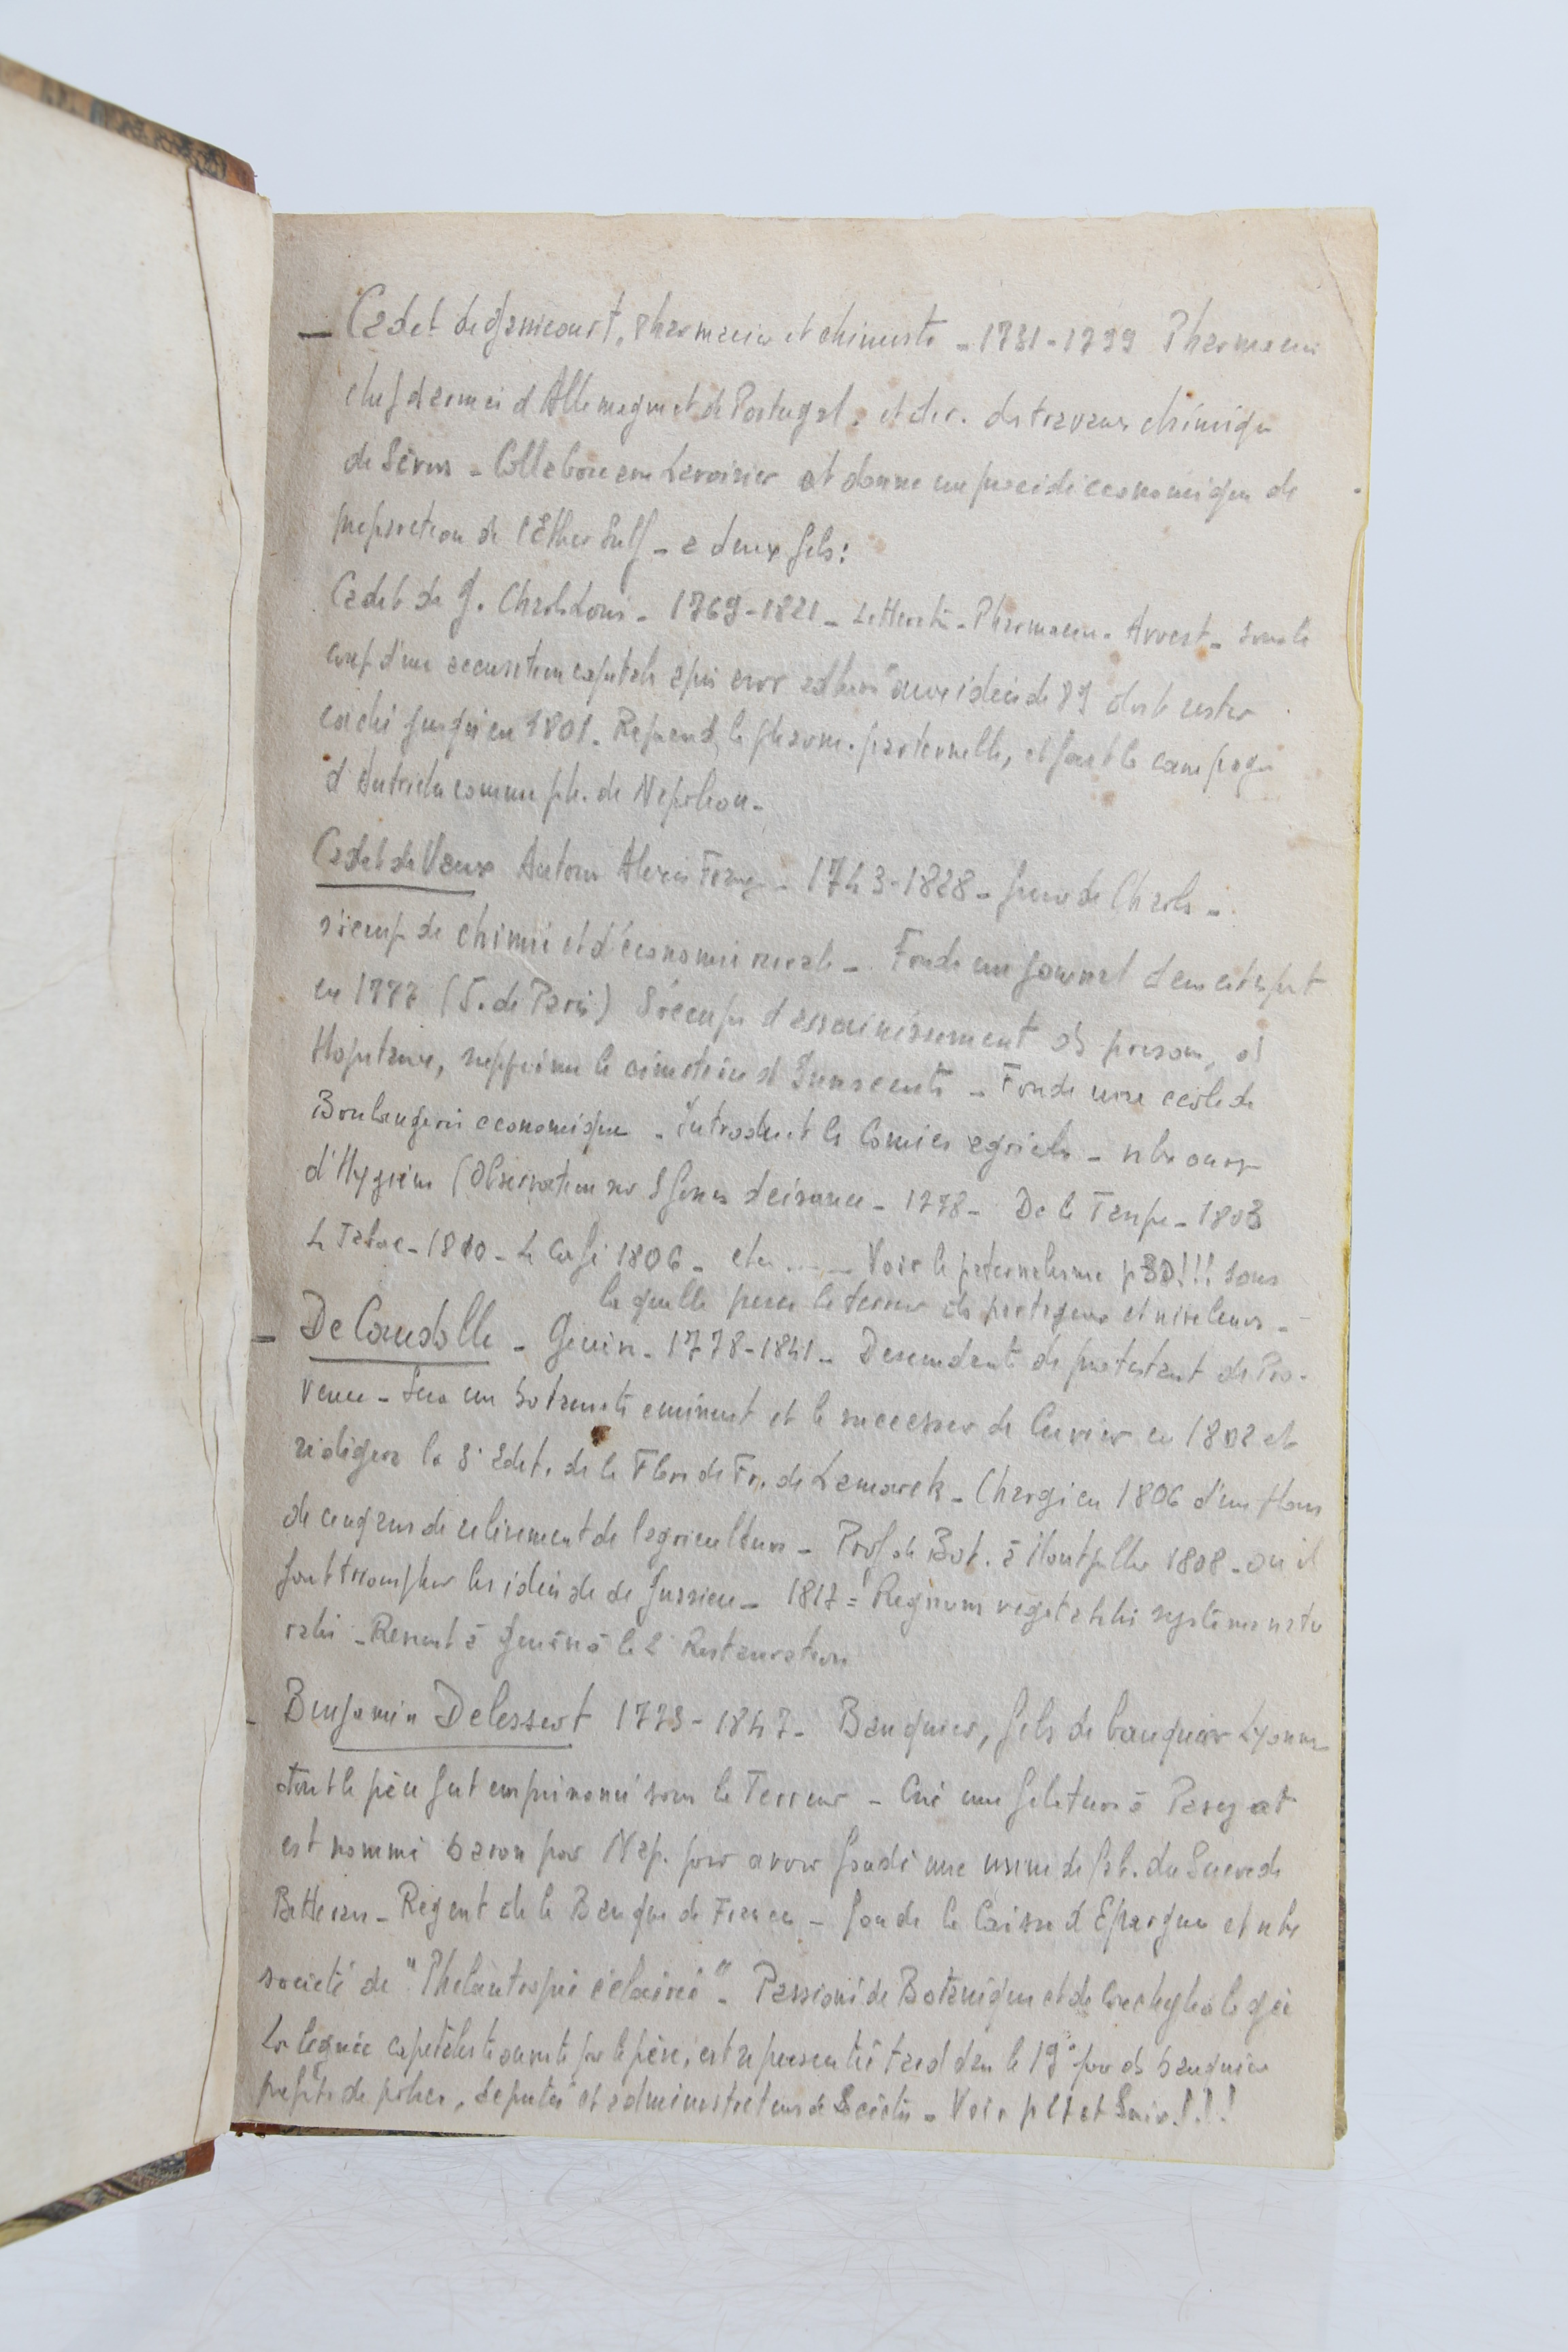 — Cadet de Gassicourt, pharmacien et chimiste - 1731-1799 Pharmacien
chef d armées d'Allemagne et de Portugal. et dir. des travaux chimiqu
de Sèvres - Collabore avec Lavoisier et donne un procédé economique de
preparation de l'Ether Sulf - a deux fils:
Cadet de G. Charles Louis - 1769-1821 - Litterate - Pharmacien. Avocat - sous le
coup d'une accusation capitale apres avoir adheré aux idées de 89 doit rester
caché jusqu'en 1801. Reprend la pharm. paternelle, et fait la campagn
d'Autriche comme ph. de Napoleon -
Cadet de Vaux Antoine Alexis Franç - 1743-1828 - frere de Charles -
s'occup de chimie et d'économie rurale - Fonde un journal
en 1777 (J. de Paris) S'occupe d assainissement ds prisons, ds
Hopitaux, supprime le cimetière ds Innocents - Fonde une ecole de
Boulangerie economique - Introduit les Comices agricoles - nbr ouvr
d'Hygiène (Observation sur les fosses d'aisance - 1778 - De la Taupe - 1803
Le Tabac - 1810 - Le Café 1806 - etc ..... Voir le paternalisme p30!!! sous
laquelle perce la terreur ds partageux et niveleurs -
— De Candolle - Genève - 1778-1841 - Descendants de protestant de Pro-
vence - Sera un botaniste eminent et le successeur de Cuvier en 1802 et
redigera la 3e Edit. de la Flore de Fr. de Lamarck - Chargé en 1806 d'un plan
de cinq ans de relèvement de l'agriculture - Prof de Bot. à Montpellier 1808 - ou il
fait triompher les idées de de Jussieu - 1817 = Regnum vegetabili systema natu
ralis - Revient à Genève à la 2e Restauration
- Benjamin Delessert 1773-1847 - Banquier, fils de banquier Lyonnais
dont le père fut emprisonné sous la Terreur - Crée une filature à Passy et
est nommé baron par Nap. pour avoir fondé une usine de fab. du Sucre de
Betterave - Regent de la Banque de France - fonde la Caisse d'Epargne et nbr
société de "Philantropie éclairée" - Passionné de Botanique et de Conchyliologie
La lignée capitaliste ouverte par le père, est representée tard dans le 19e par ds banquiers
prefets de police, deputés et administrateurs de Sociétés - Voir p et Suiv!!!